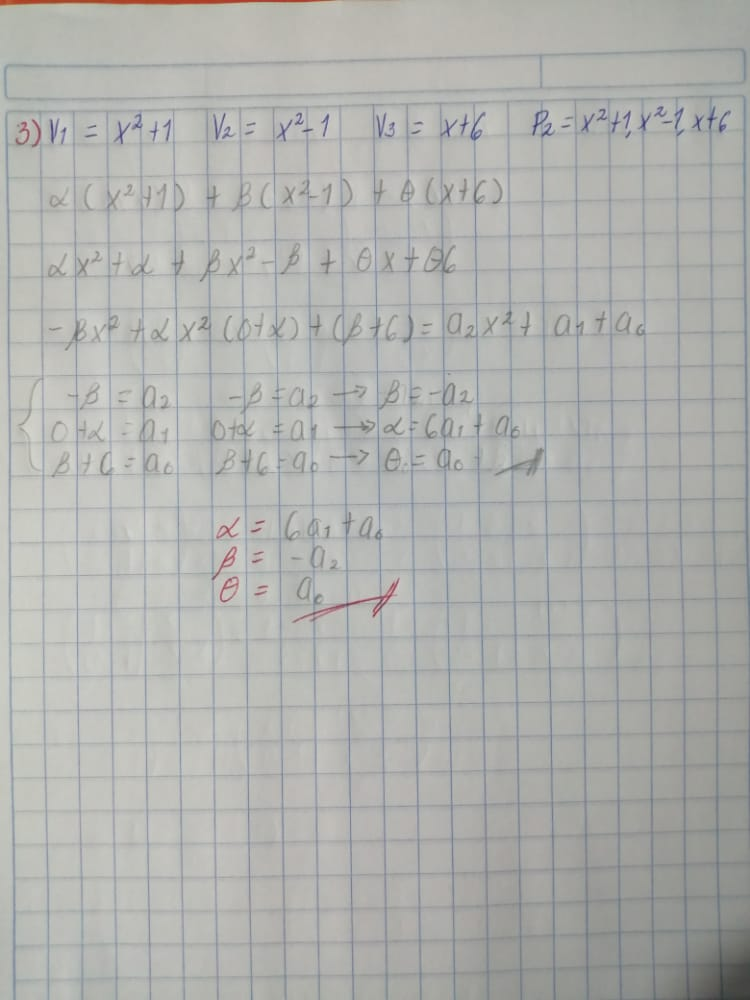 3) V1 = x²+1 V2 = x²-1 V3 = x+6 P2 = x²+1, x²-1, x+6
α(x²+1) + β(x²-1) + θ(x+6)
αx² + α + βx² - β + θx + θ6
-βx² + αx² (0+α) + (β+6) = a₂x² + a₁ + a₀
-β = a₂ -β = a₂ → β = -a₂
0+α = a₁ 0+α = a₁ → α = 6a₁ + a₀
β+6 = a₀ β+6 = a₀ → θ = a₀
α = 6a₁ + a₀
β = -a₂
θ = a₀